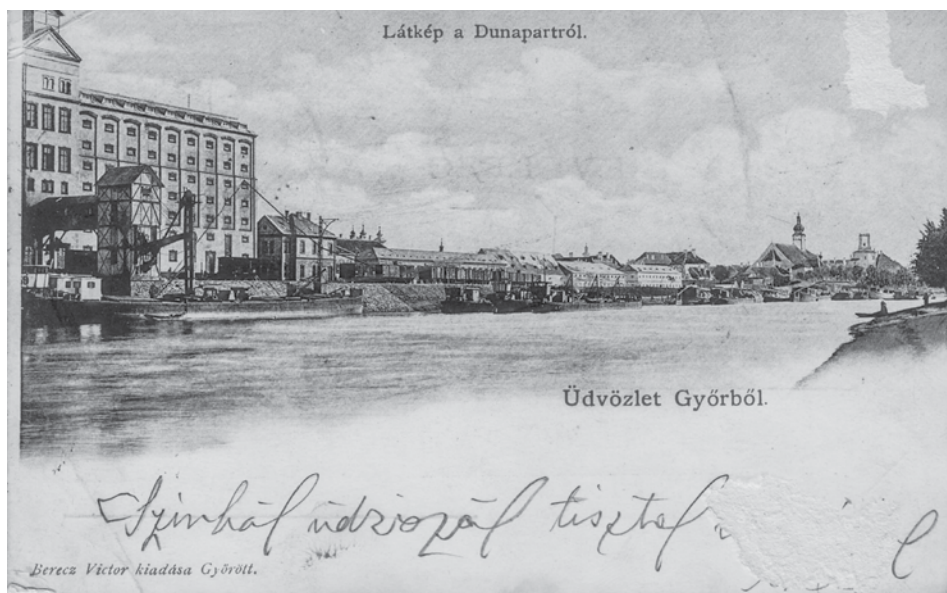 Látkép a Dunapartról.
Üdvözlet Győrből.
üdvözöl tisztel
Berecz Victor kiadása Győrött.